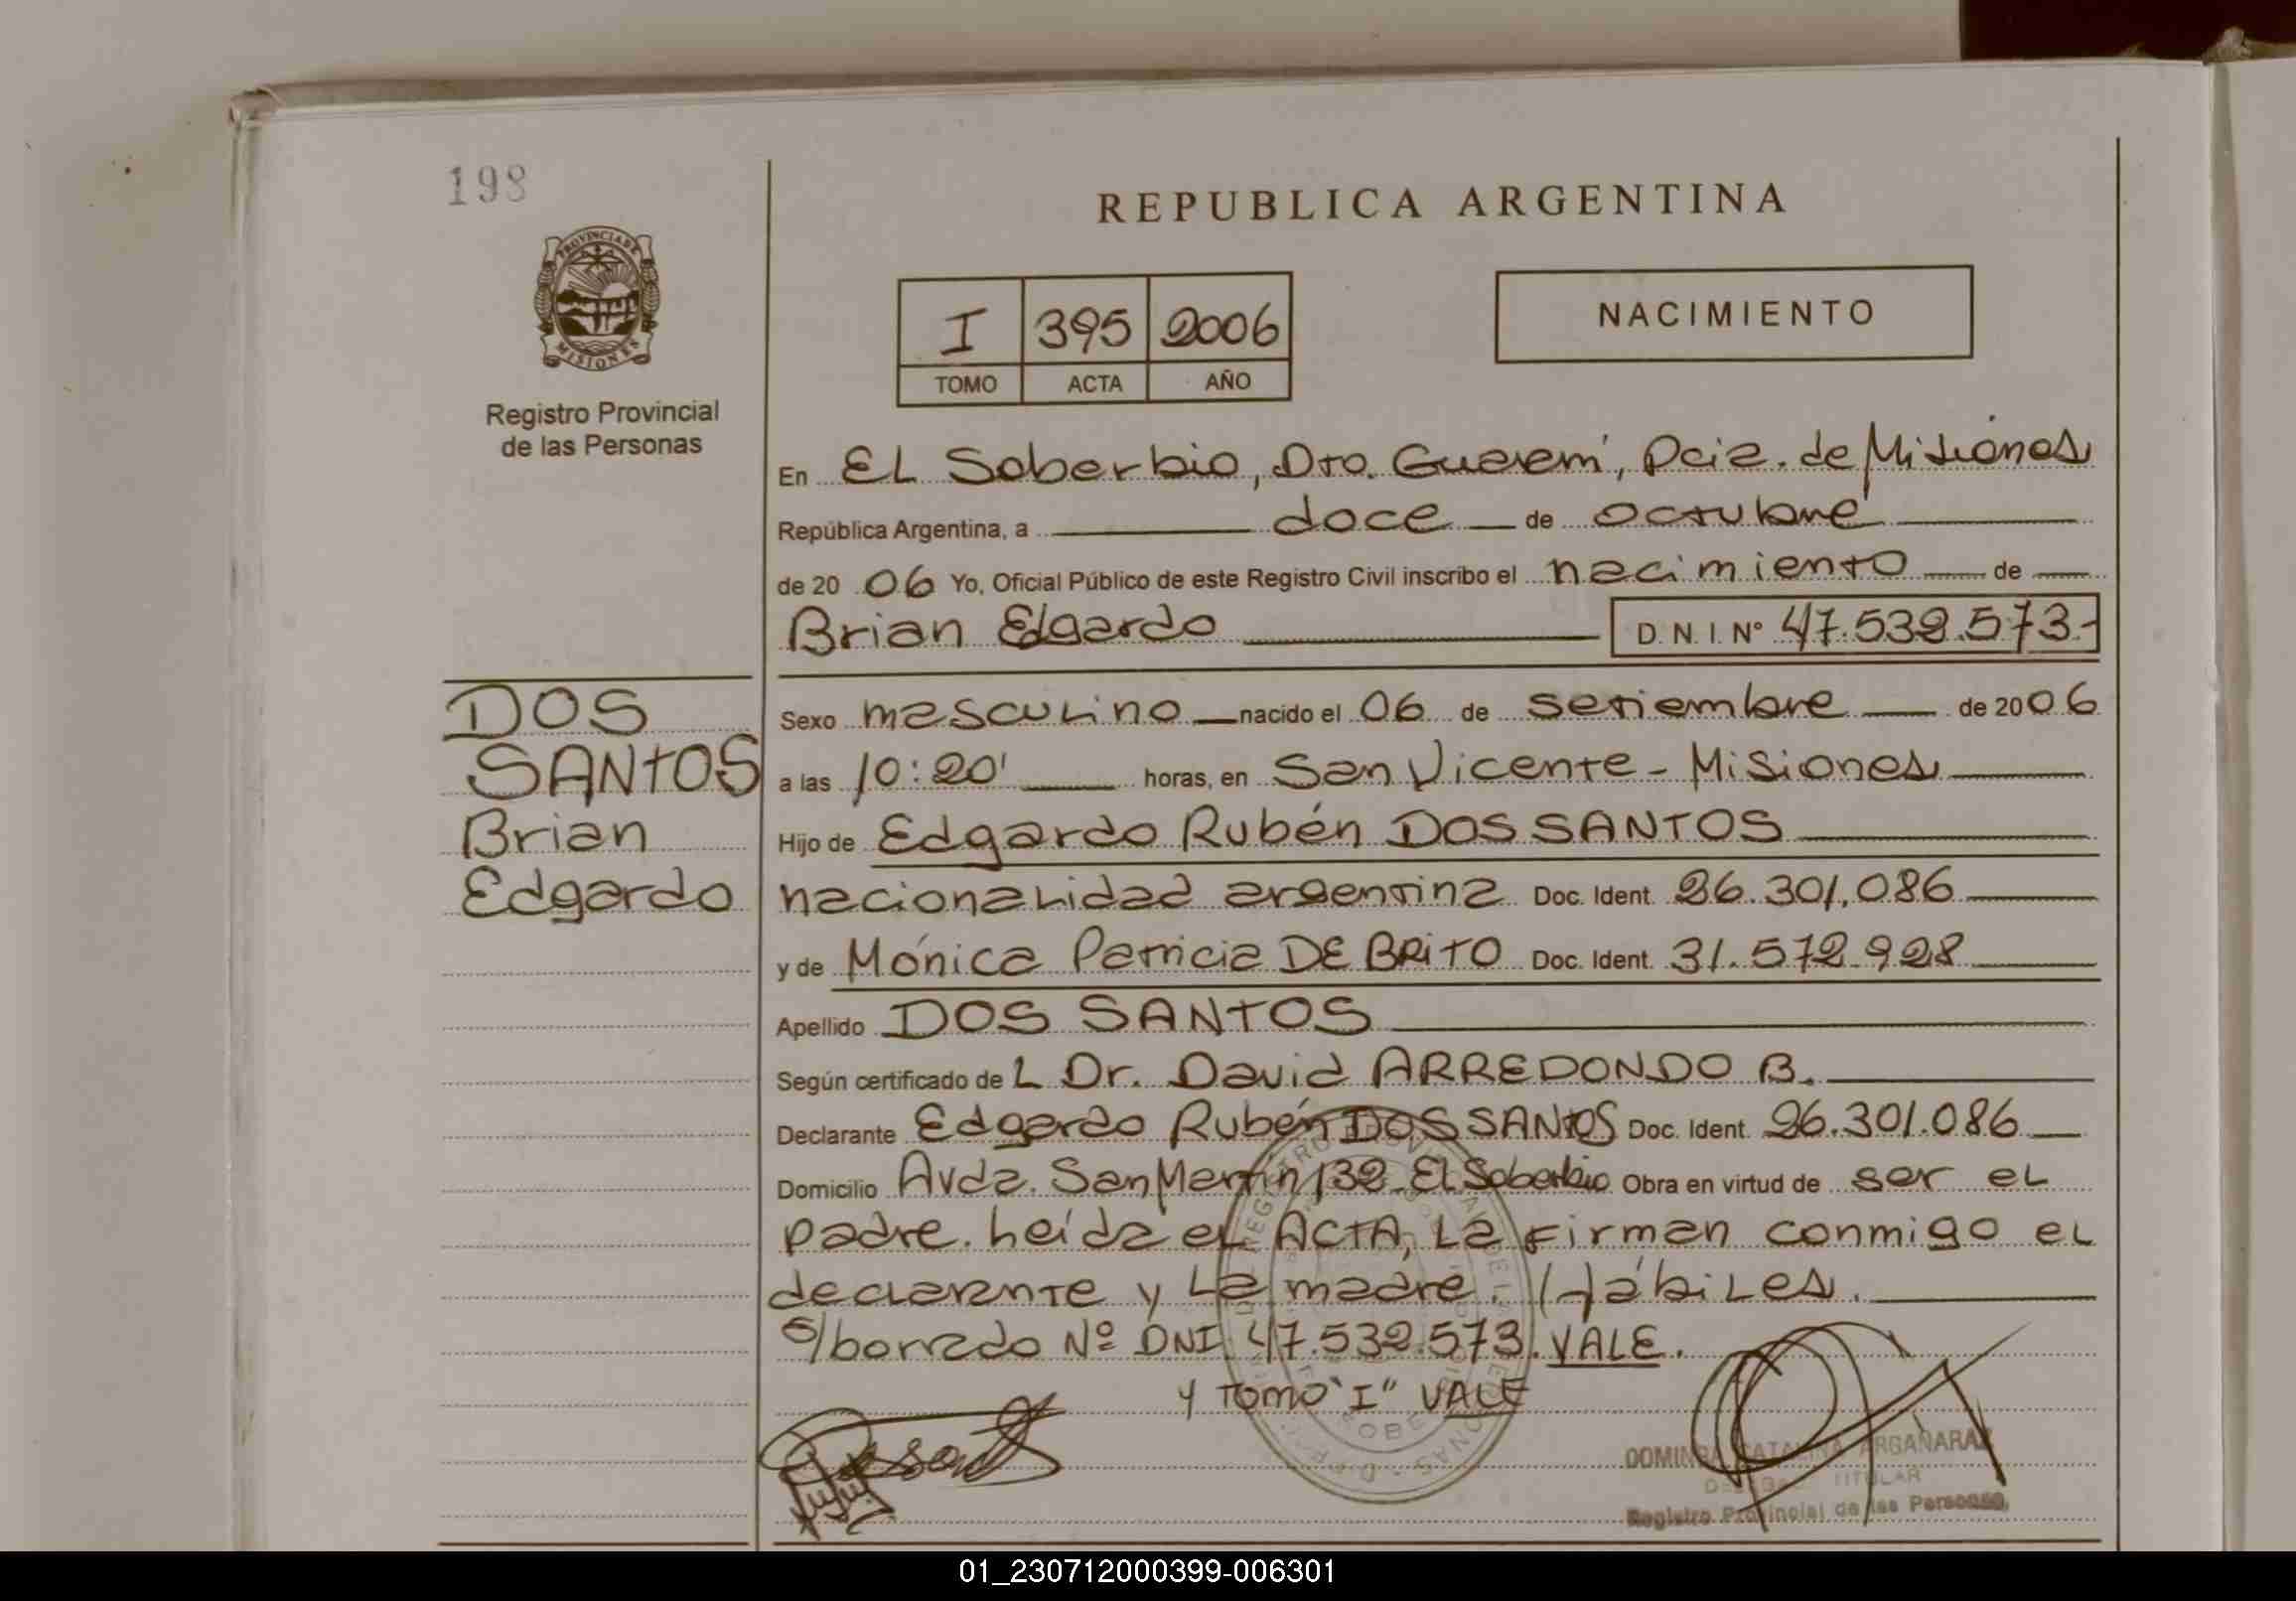 198
REPUBLICA ARGENTINA
PROVINCIA DE
MISIONES
I 395 2006
TOMO ACTA AÑO
NACIMIENTO
Registro Provincial
de las Personas
En EL Soberbio, Dto. Guaraní, Pcia. de Misiones
República Argentina, a doce de octubre
de 20 06 Yo, Oficial Público de este Registro Civil inscribo el nacimiento de
Brian Edgardo D.N.I. Nº 47.532.573.-
DOS
SANTOS
Brian
Edgardo
Sexo masculino nacido el 06 de setiembre de 20 06
a las 10:20' horas, en San Vicente - Misiones
Hijo de Edgardo Rubén DOS SANTOS
nacionalidad argentina Doc. Ident. 26.301.086
y de Mónica Patricia DE BRITO Doc. Ident. 31.572.928
Apellido DOS SANTOS
Según certificado de L Dr. David ARREDONDO B.
Declarante Edgardo Rubén DOS SANTOS Doc. Ident. 26.301.086
Domicilio Avda. San Martín 132 El Soberbio Obra en virtud de ser el
padre. Leída el ACTA, La firman conmigo el
declarante y La madre. Hábiles.
s/borrado Nº DNI. 47.532.573. VALE.
y TOMO "I" VALE
DOMINGA CATALINA ARGAÑARAZ
TITULAR
Registro Provincial de las Personas
01_230712000399-006301